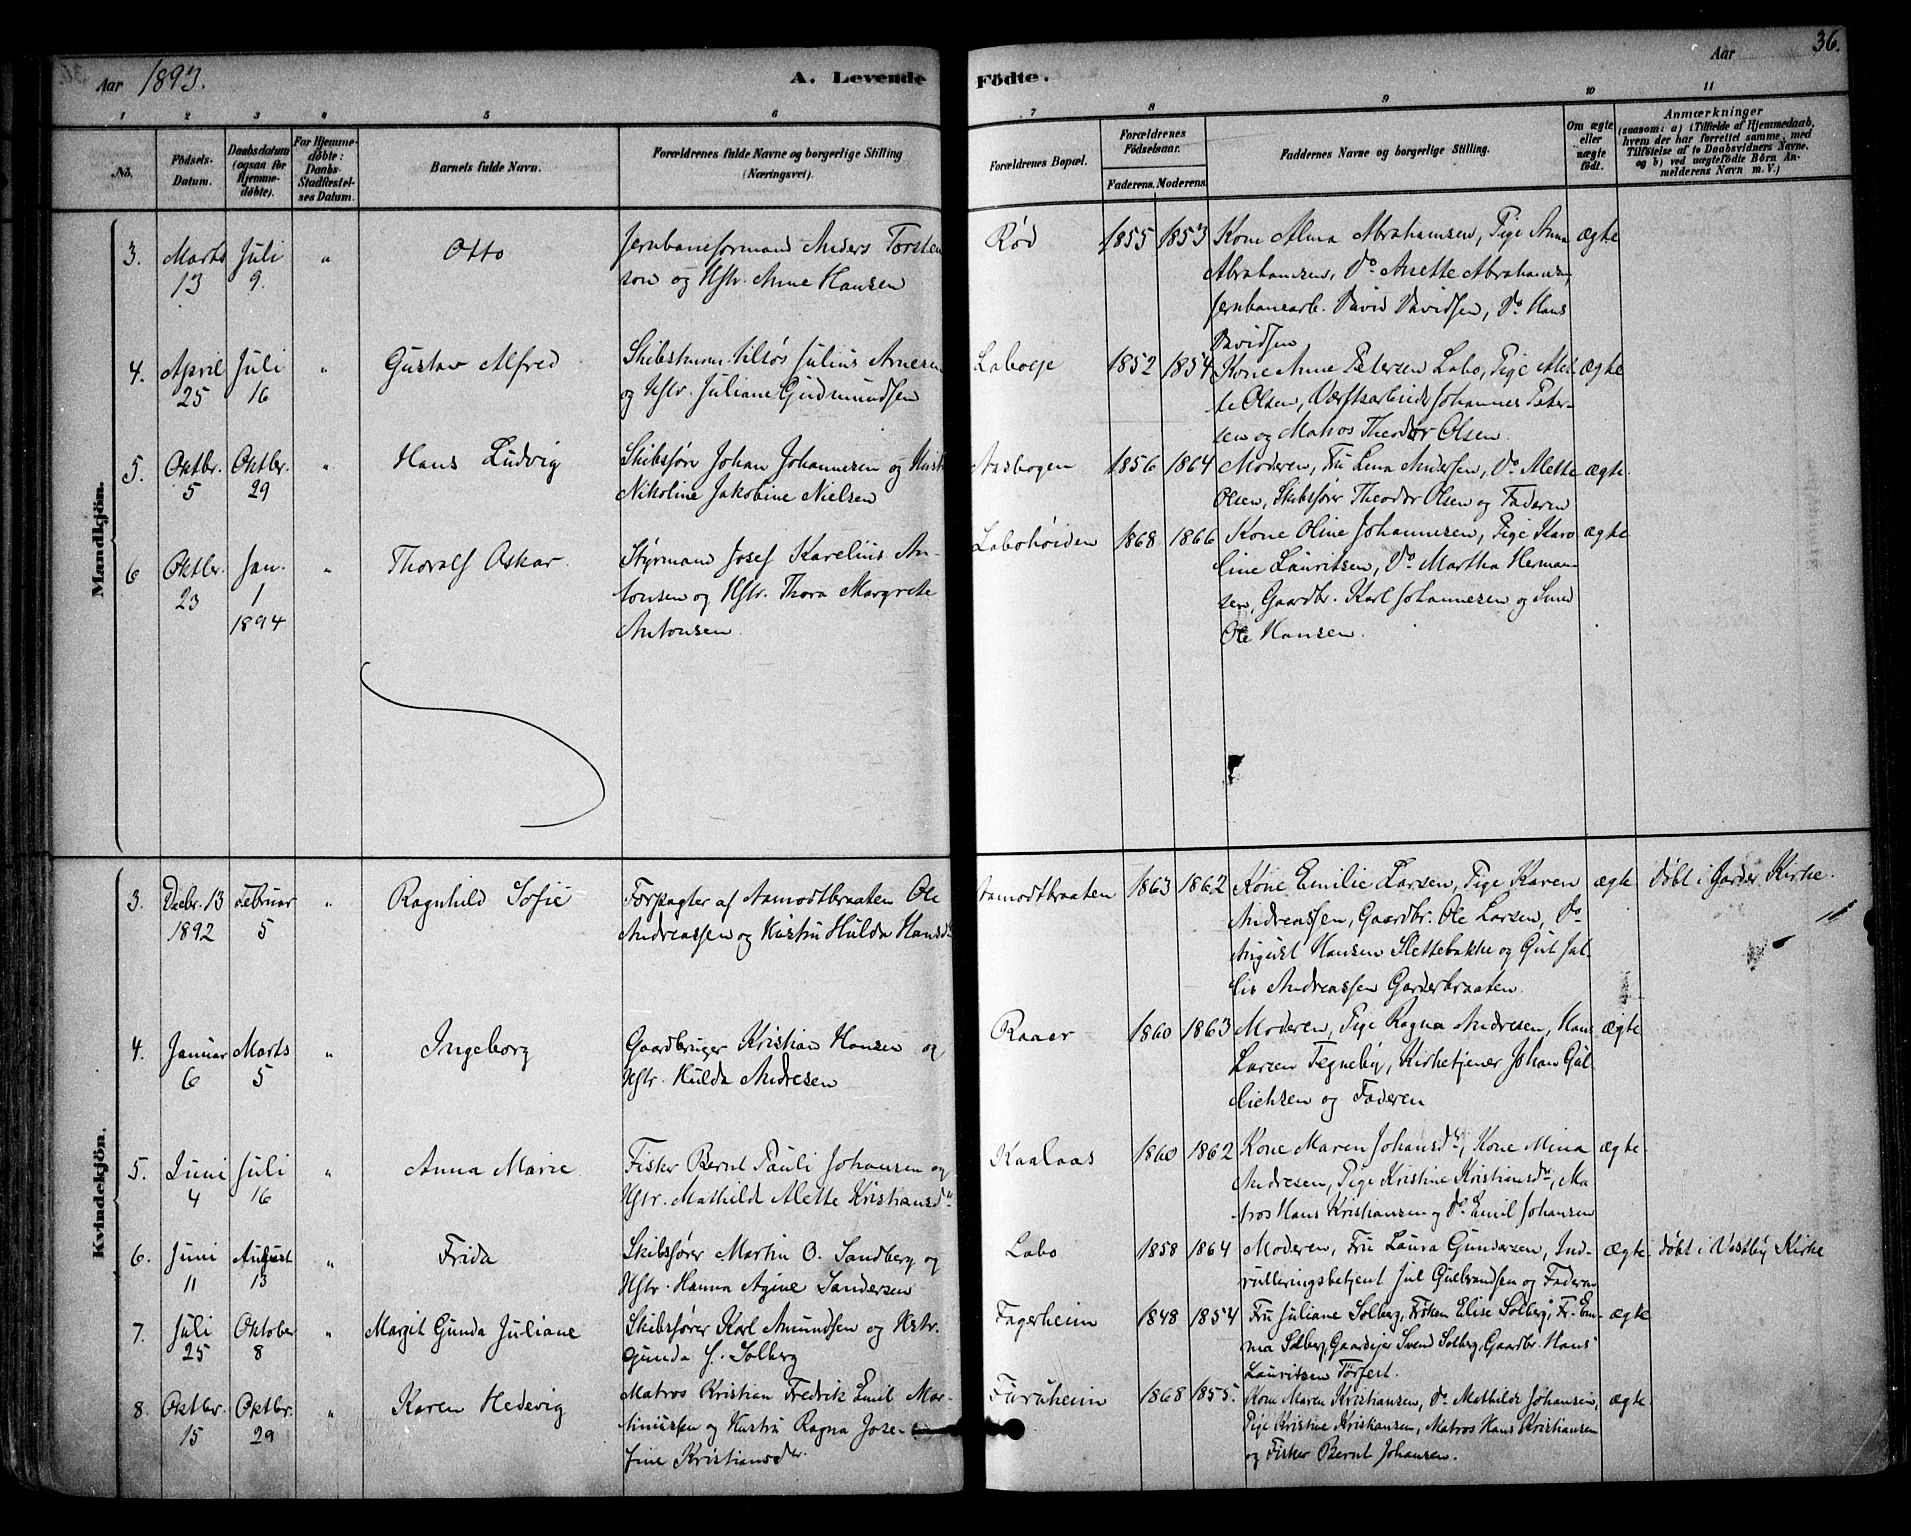 Aar 1893.
A. Levende Födte.
Aar
36.
1 2 3 4 5 6 7 8 9 10 11
No.
Födsels-Datum.
Daabsdatum (ogsaa for Hjemmedöbte).
For Hjemmedöbte: Daabs-Stadfæstelses Datum.
Barnets fulde Navn.
Forældrenes fulde Navne og borgerlige Stilling (Næringsvei).
Forældrenes Bopæl.
Forældrenes Födselsaar.
Faderens. Moderens.
Faddernes Navne og borgerlige Stilling.
Om ægte eller uægte födt.
Anmærkninger
(saasom: a) i Tilfælde af Hjemmedaab, hvem der har forrettet samme, med Tilföielse af to Daabsvidners Navne, og b) ved uægtefödte Börn Anmelderens Navn m. V.)
Mandkjön.
3. Marts 13 Juli 9. " Otto
Jernbaneformand Anders Torsten
son og Hstr. Anne Hansen
Rød 1855 1853
Kone Alma Abrahamsen, Pige Anna
Abrahamsen, Do Anette Abrahamsen,
Jernbanearb. David Davidsen, Do Hans
Davidsen
ægte
4. April 25 Juli 16 " Gustav Alfred
Skibstømm. Julius Arnesen
og Hstr. Juliane Gudmundsen
Laboeje 1852 1854
Kone Anne Petersen Labo, Pige Alet-
te Olsen, Værftsarbeider Johannes Peter-
sen og Matros Theodor Olsen.
ægte
5. Oktbr. 5 Oktbr. 29 " Hans Ludvig
Skibsfører Johan Johannesen og Hust
Nikoline Jakobine Nielsen
Aasbogen 1856 1864
Moderen, Fru Lena Andersen, Do Alette
Olsen, Skibsfører Theodor Olsen og Faderen
ægte.
6 Oktbr. 23 Jan. 1 1894 " Thoralf Oskar.
Styrmann Josef Karelius An-
tonsen og Hstr. Thora Margrete
Antonsen.
Labohøiden 1868 1866
Kone Oline Johannesen, Pige Karo
line Lauritsen, Do Martha Herman-
sen, Gaardbr. Karl Johannesen og Smed
Ole Hansen.
ægte
Kvindekjön.
3. Decbr. 13 1892 Februar 5 " Ragnhild Sofie
Forpagter af Aamodtbraaten Ole
Andreassen og Kustru Hulda Hansdr
Aamodtbraaten 1863 1862
Kone Emilie Larsen, Pige Karen
Andreassen, Gaardbr. Ole Larsen, Do
August Hansen Slettebakke og Gut Jul-
lis Andreassen Garderbraaten.
ægte døbt i Garder Kirke.
4. Januar 6 Marts 5 " Ingeborg
Gaardbruger Kristian Hansen og
Hstr. Hulda Andresen
Raaer 1860 1863
Moderen, Pige Ragna Andresen, Hans
Larsen Tegneby, Kirketjener Johan Gul-
lichsen og Faderen
ægte
5. Juni 4 Juli 16 " Anna Marie
Fisker Bernt Pauli Johansen og
Hstr. Mathilde Alette Kristiansdr
Kaalaas 1860 1862
Kone Maren Johansdr, Kone Mina
Andresen, Pige Kristine Kristiansdr, Ma-
tros Hans Kristiansen og Do Emil Johansen
ægte
6. Juni 11 August 13 " Frida
Skibsfører Martin O. Sandberg og
Hstr. Hanna Agine Sandersen
Labo 1858 1864
Moderen, Fru Laura Gundersen, Ind-
rulleringsbetjent Jul Gulbrandsen og Faderen
ægte døbt i Vestby Kirke
7. Juli 25 Oktober 8 " Margit Gunda Juliane
Skibsfører Karl Amundsen og Hstr.
Gunda J. Solberg
Fagerheim 1848 1854
Fru Juliane Solberg, Frøken Elise Solberg, Fr. Em-
ma Solberg, Gaardejer Svend Solberg, Gaardbr. Hans
Lauritsen Torfest.
ægte
8. Oktbr. 15 Oktbr. 29 " Karen Hedevig
Matros Kristian Fredrik Emil Mar-
tinussen og Kustru Ragna Jose-
fine Kristiansdr
Furuheim 1868 1855.
Kone Maren Kristiansen, Do Mathilde Johansen,
Pige Kristine Kristiansen, Matros Hans Kristiansen
og Fisker Bernt Johansen.
ægte.